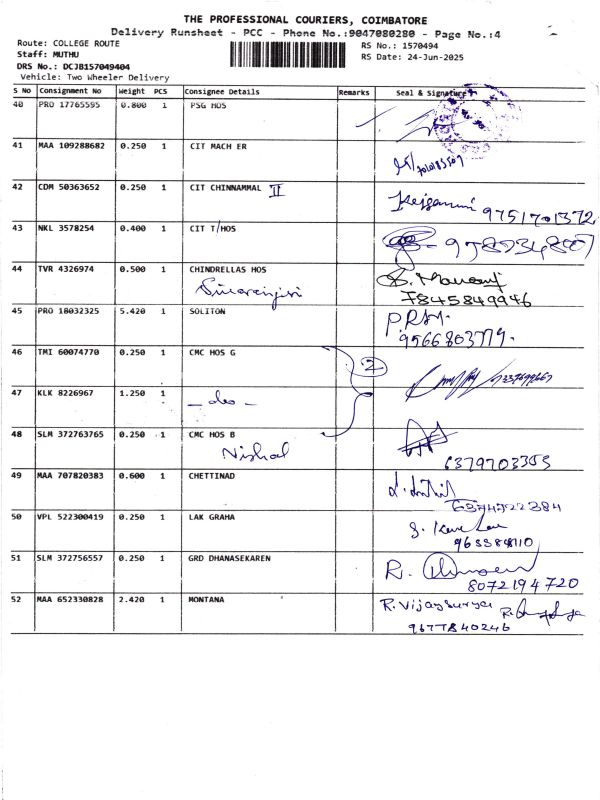 THE PROFESSIONAL COURIERS, COIMBATORE
Delivery Runsheet - PCC - Phone No.:9047080280 - Page No.:4
Route: COLLEGE ROUTE
RS No.: 1570494
Staff: MUTHU
RS Date: 24-Jun-2025
DRS No.: DCJB157049404
Vehicle: Two Wheeler Delivery
S No Consignment No Weight PCS Consignee Details Remarks Seal & Signature
40 PRO 17765595 0.800 1 PSG HOS
41 MAA 109288682 0.250 1 CIT MACH ER
42 CDM 50363652 0.250 1 CIT CHINNAMMAL II
9751701372
43 NKL 3578254 0.400 1 CIT T/HOS
44 TVR 4326974 0.500 1 CHINDRELLAS HOS
7845849946
45 PRO 18032325 5.420 1 SOLITON
9566803779.
46 TMI 60074770 0.250 1 CMC HOS G 2
47 KLK 8226967 1.250 1
- do -
48 SLM 372763765 0.250 1 CMC HOS B
Nishal
6379703353
49 MAA 707820383 0.600 1 CHETTINAD
6374722384
50 VPL 522300419 0.250 1 LAK GRAHA
51 SLM 372756557 0.250 1 GRD DHANASEKAREN
R.
8072194720
52 MAA 652330828 2.420 1 MONTANA R. Vijaysurya
9677840246